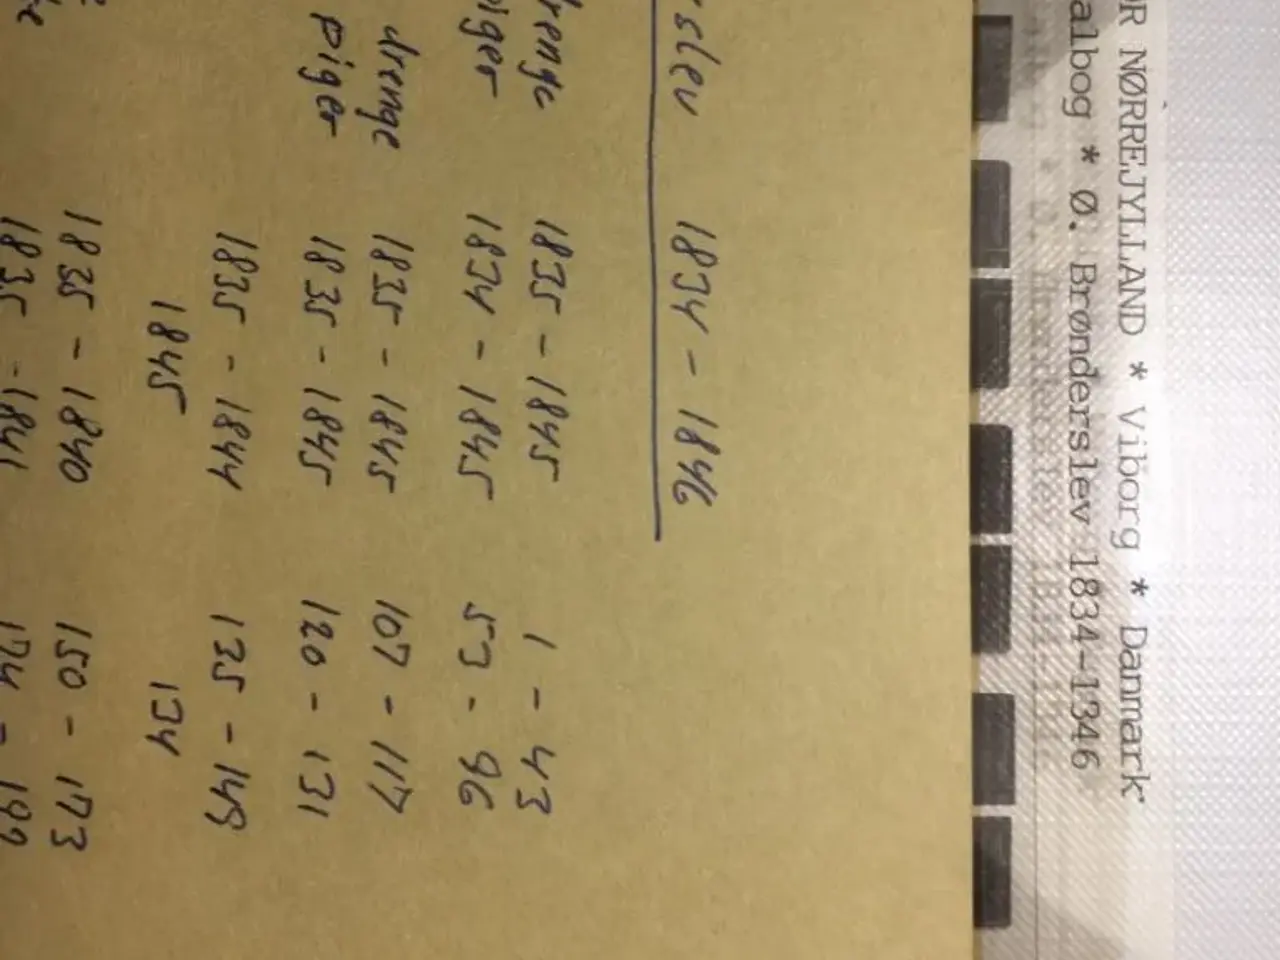 OR NØRREJYLLAND * Viborg * Danmark
albog * Ø. Brønderslev 1834-1846
rslev 1834 - 1846
drenge 1835 - 1845 1 - 43
piger 1834 - 1845 53 - 96
drenge 1835 - 1845 107 - 117
piger 1835 - 1845 120 - 131
1835 - 1844 135 - 149
1845 134
1835 - 1840 150 - 173
1835 - 1841 174 - 199